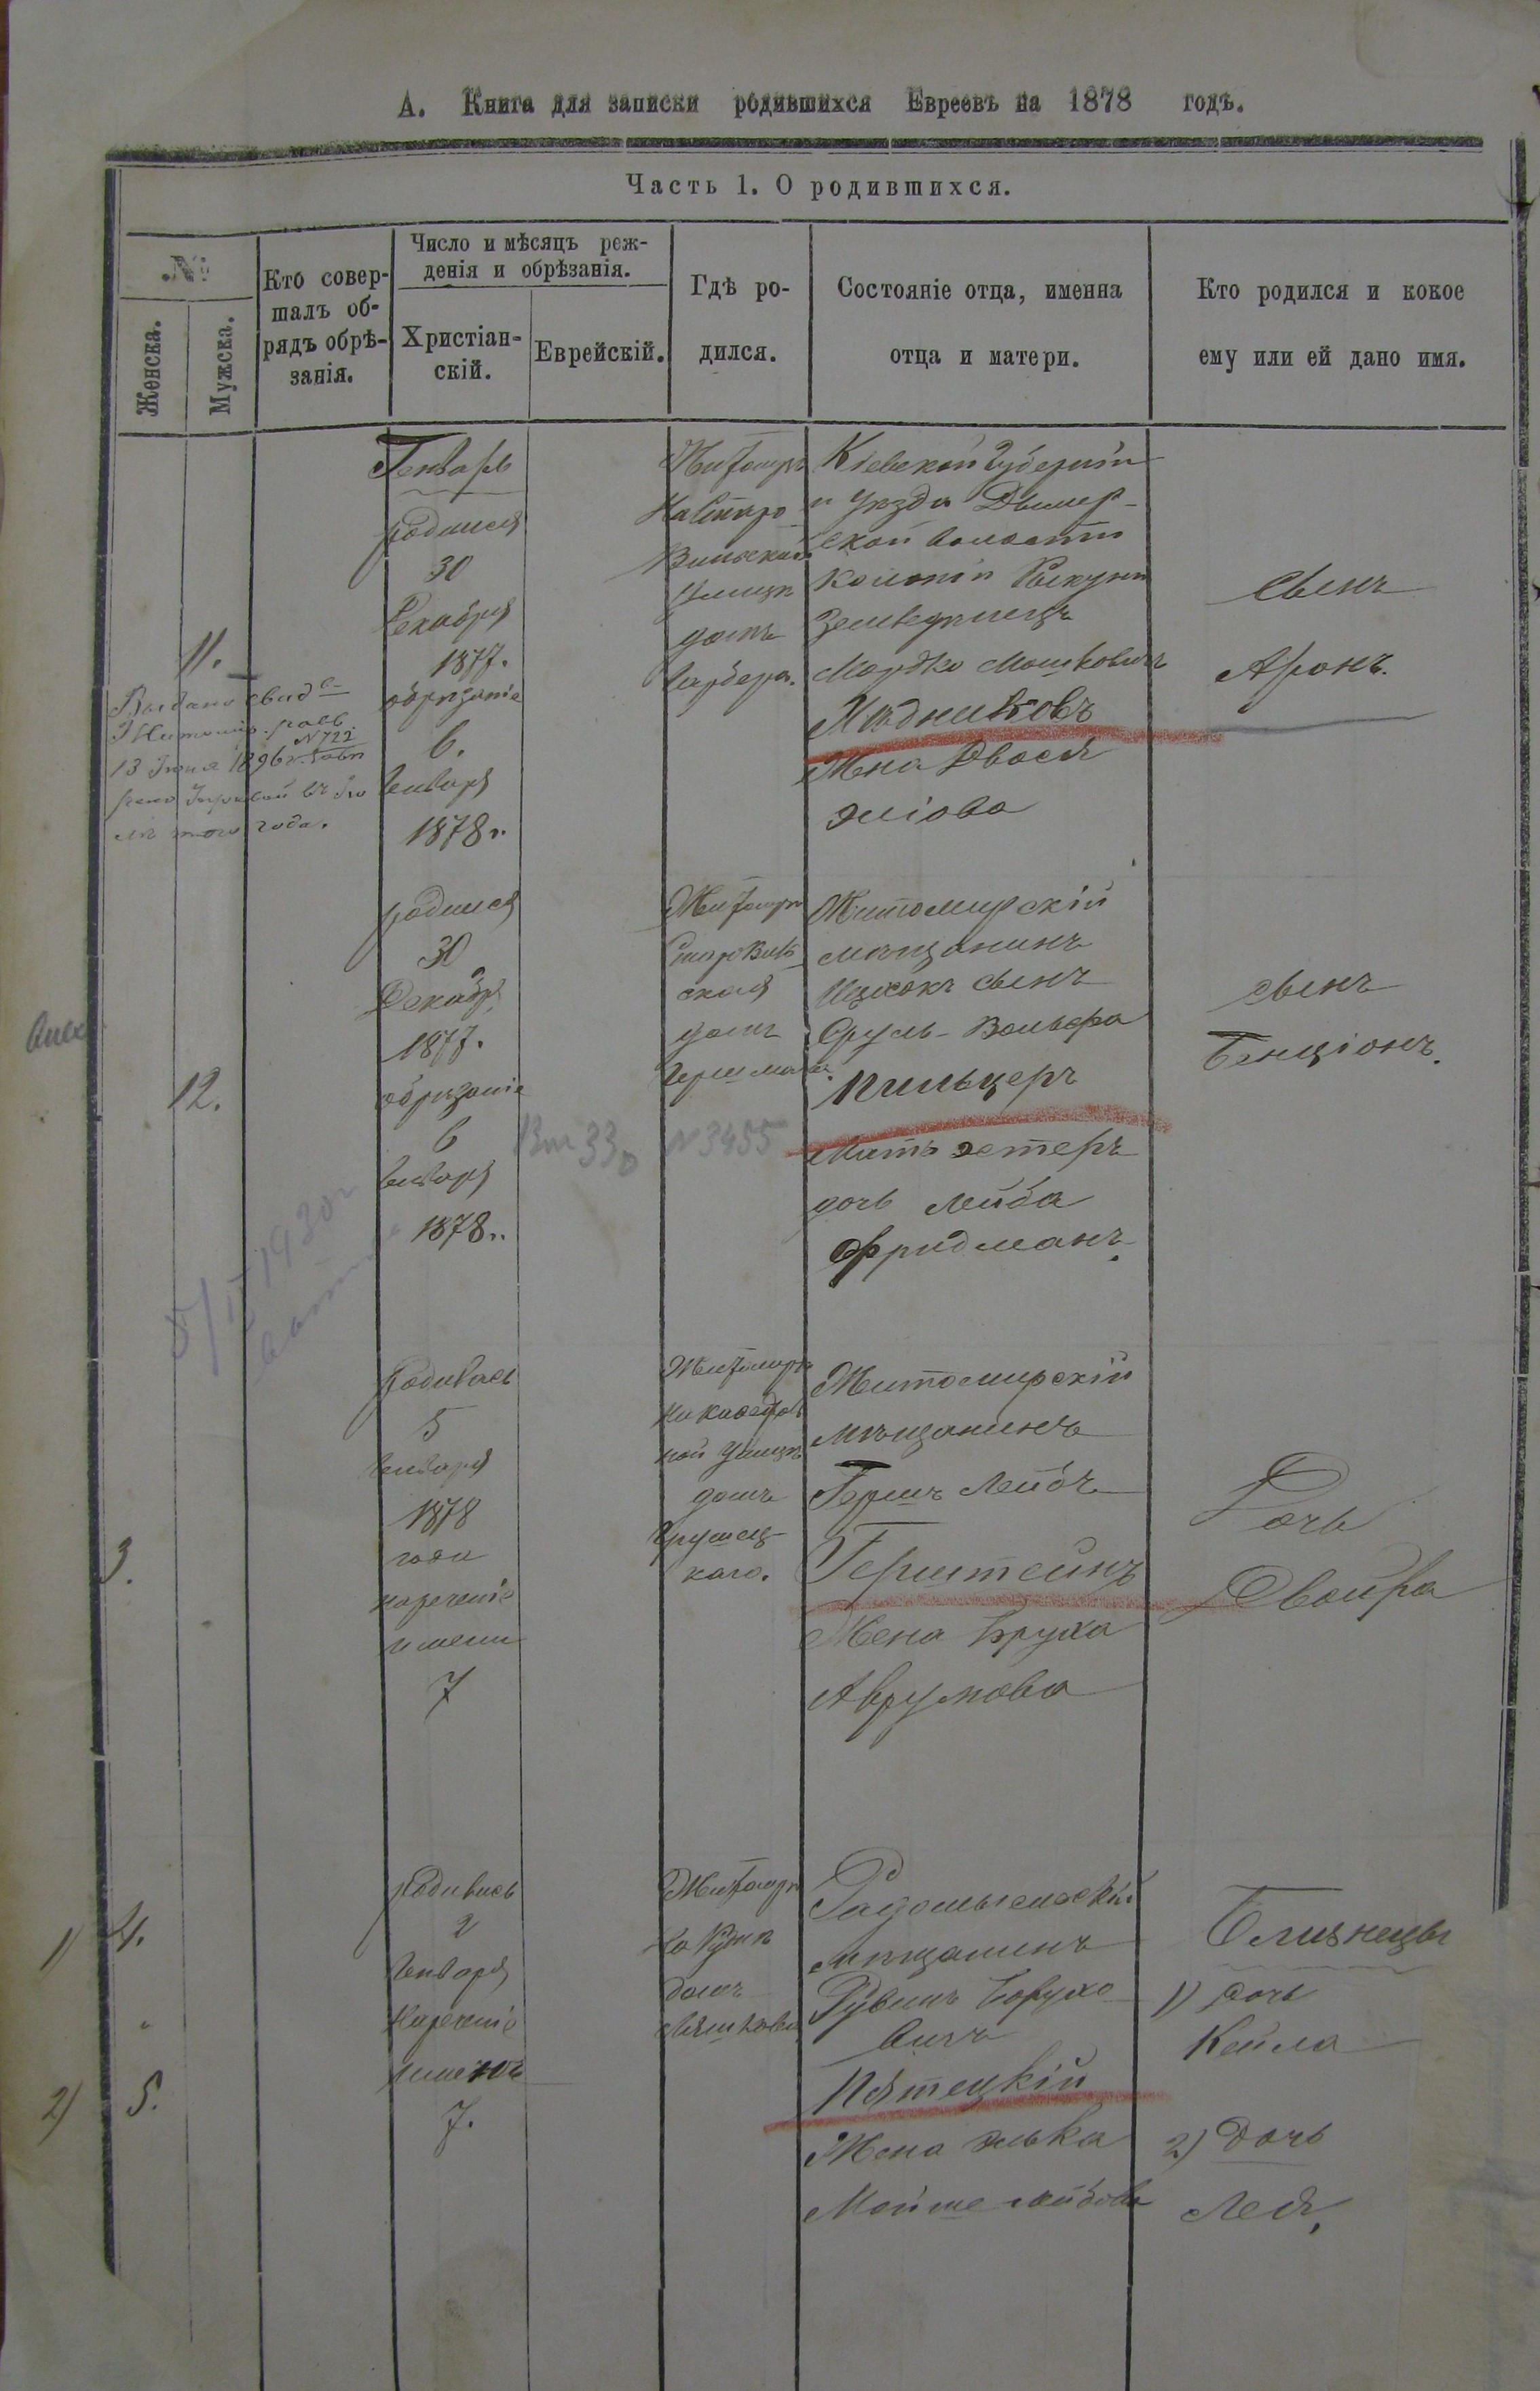 А. Книга для записки родившихся Евреевъ на 1878 годъ.
Часть 1. О родившихся.
№
Женска.
Мужска.
Кто совер-
шалъ об-
рядъ обрѣ-
занія.
Число и мѣсяцъ реж-
денія и обрѣзанія.
Христіан-
скій.
Еврейскій.
Гдѣ ро-
дился.
Состояніе отца, именна
отца и матери.
Кто родился и кокое
ему или ей дано имя.
11.
Выдано свид
Житомир.
13 1896 № 722
того года.
Генварь
родился
30
Декабря
1877.
обрѣзаніе
6.
Генваря
1878 г.
Житомиръ
На Старо
Вильской
улицѣ
домъ
Кіевской Губерніи
и уѣзда Дымер-
ской волости
колоніи Рыкунь
Земледѣлецъ
Мордко Мошковичъ
Жена Двося
Эліова
Сынъ
Аронъ.
12.
родился
30
Декабр
1877.
обрѣзаніе
6
Генваря
1878 г.
№ 3455
5/IV 1930 г
Житомиръ
ская
домъ
Житомирскій
мѣщанинъ
Ицкокъ сынъ
Сруль-Вольфа
Пильцеръ
Мать Эстеръ
дочь Лейба
Фридманъ.
сынъ
Бенціонъ.
3.
Родилась
5
Генваря
1878
года
нареченіе
имени
7
Житомиръ
на Каѳедраль
ной улицѣ
домъ
Грушец-
каго.
Житомирскій
мѣщанинъ
Гершъ Лейбъ
Герштейнъ
Жена Бруха
Аврумова
Дочь
Двойра
1) 4.
2) 5.
родились
2
Генваря
Нареченіе
именъ
7.
Житомиръ
домъ
Радомысльскій
мѣщанинъ
Рувинъ Борухо
вичъ
Пятецкій
Жена Элька
Мойше Лейбова
Близнецы
1) дочь
Кейла
2) Дочь
Лея.